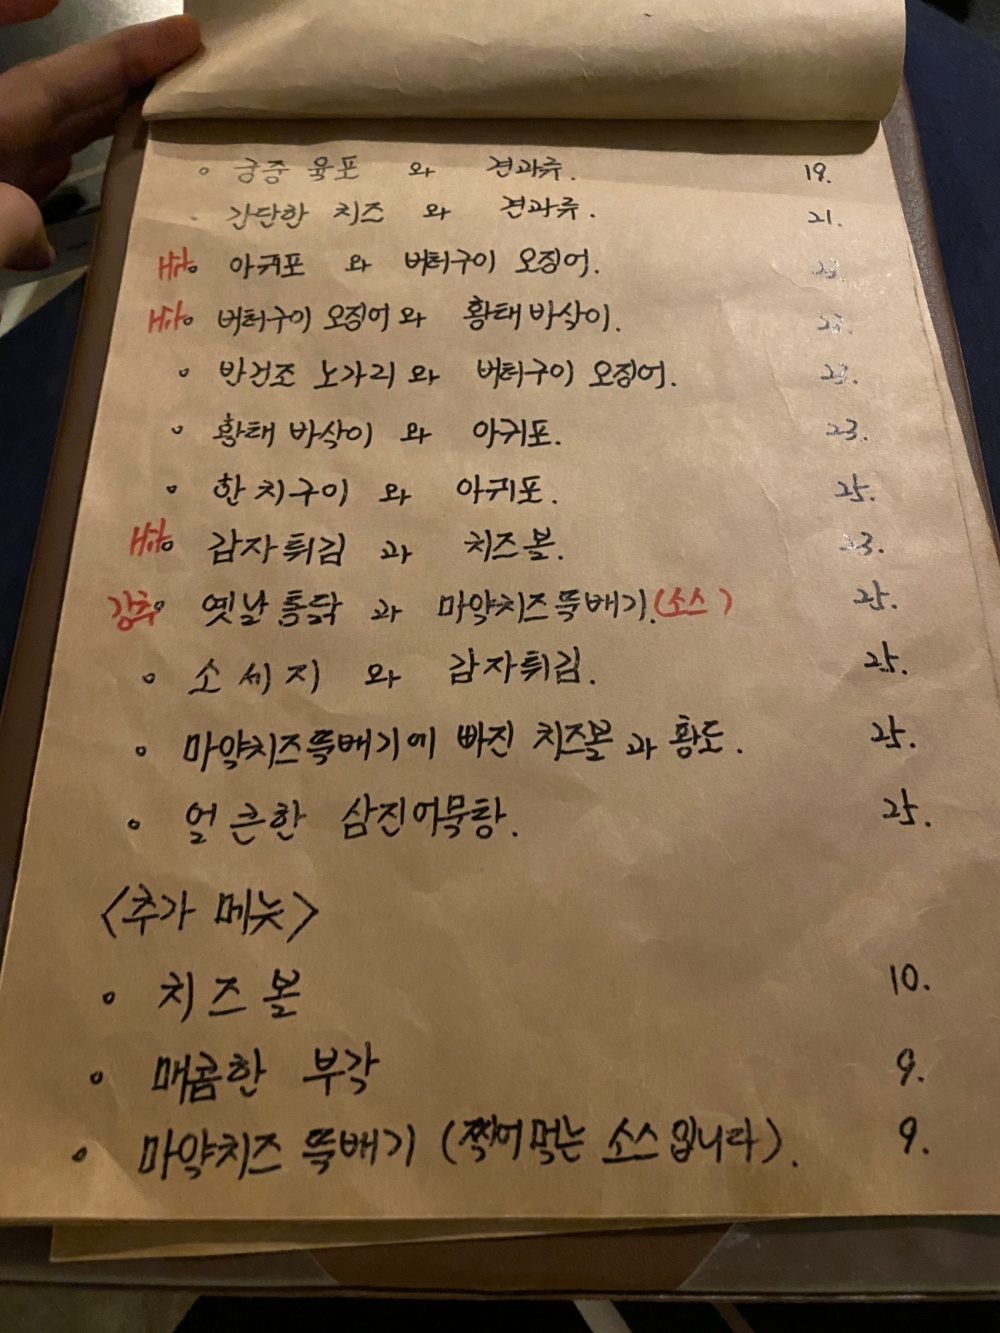 ◦ 궁중 육포 와 견과류. 19.
· 간단한 치즈 와 견과류. 21.
Hit◦ 아귀포 와 버터구이 오징어. 23.
Hit◦ 버터구이 오징어와 황태 바삭이. 23.
◦ 반건조 노가리와 버터구이 오징어. 23.
◦ 황태 바삭이 와 아귀포. 23.
◦ 한치구이 와 아귀포. 25.
Hit◦ 감자튀김 과 치즈볼. 23.
강추◦ 옛날통닭 과 마약치즈뚝배기.(소스) 25.
◦ 소세지 와 감자튀김. 25.
◦ 마약치즈뚝배기에 빠진 치즈볼과 황도. 25.
◦ 얼큰한 삼진어묵탕. 25.
<추가 메뉴>
◦ 치즈볼 10.
◦ 매콤한 부각 9.
◦ 마약치즈 뚝배기 (찍어먹는 소스입니다). 9.